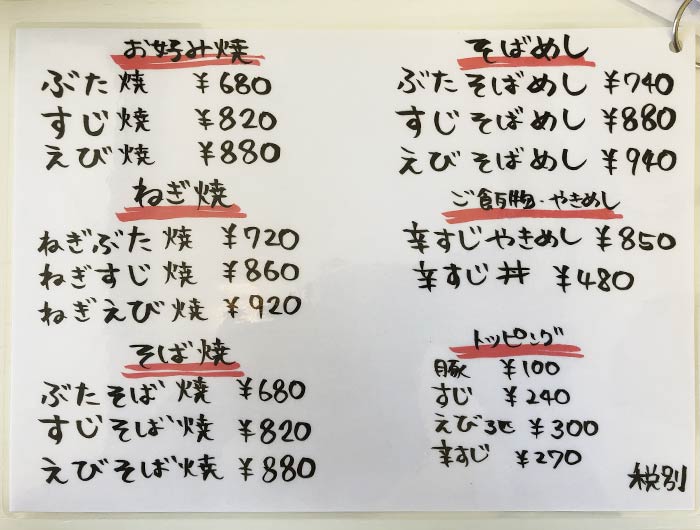 お好み焼
ぶた焼 ¥680
すじ焼 ¥820
えび焼 ¥880
ねぎ焼
ねぎぶた焼 ¥720
ねぎすじ焼 ¥860
ねぎえび焼 ¥920
そば焼
ぶたそば焼 ¥680
すじそば焼 ¥820
えびそば焼 ¥880
そばめし
ぶたそばめし ¥740
すじそばめし ¥880
えびそばめし ¥940
ご飯物・やきめし
辛すじやきめし ¥850
辛すじ丼 ¥480
トッピング
豚 ¥100
すじ ¥240
えび3匹 ¥300
辛すじ ¥270
税別